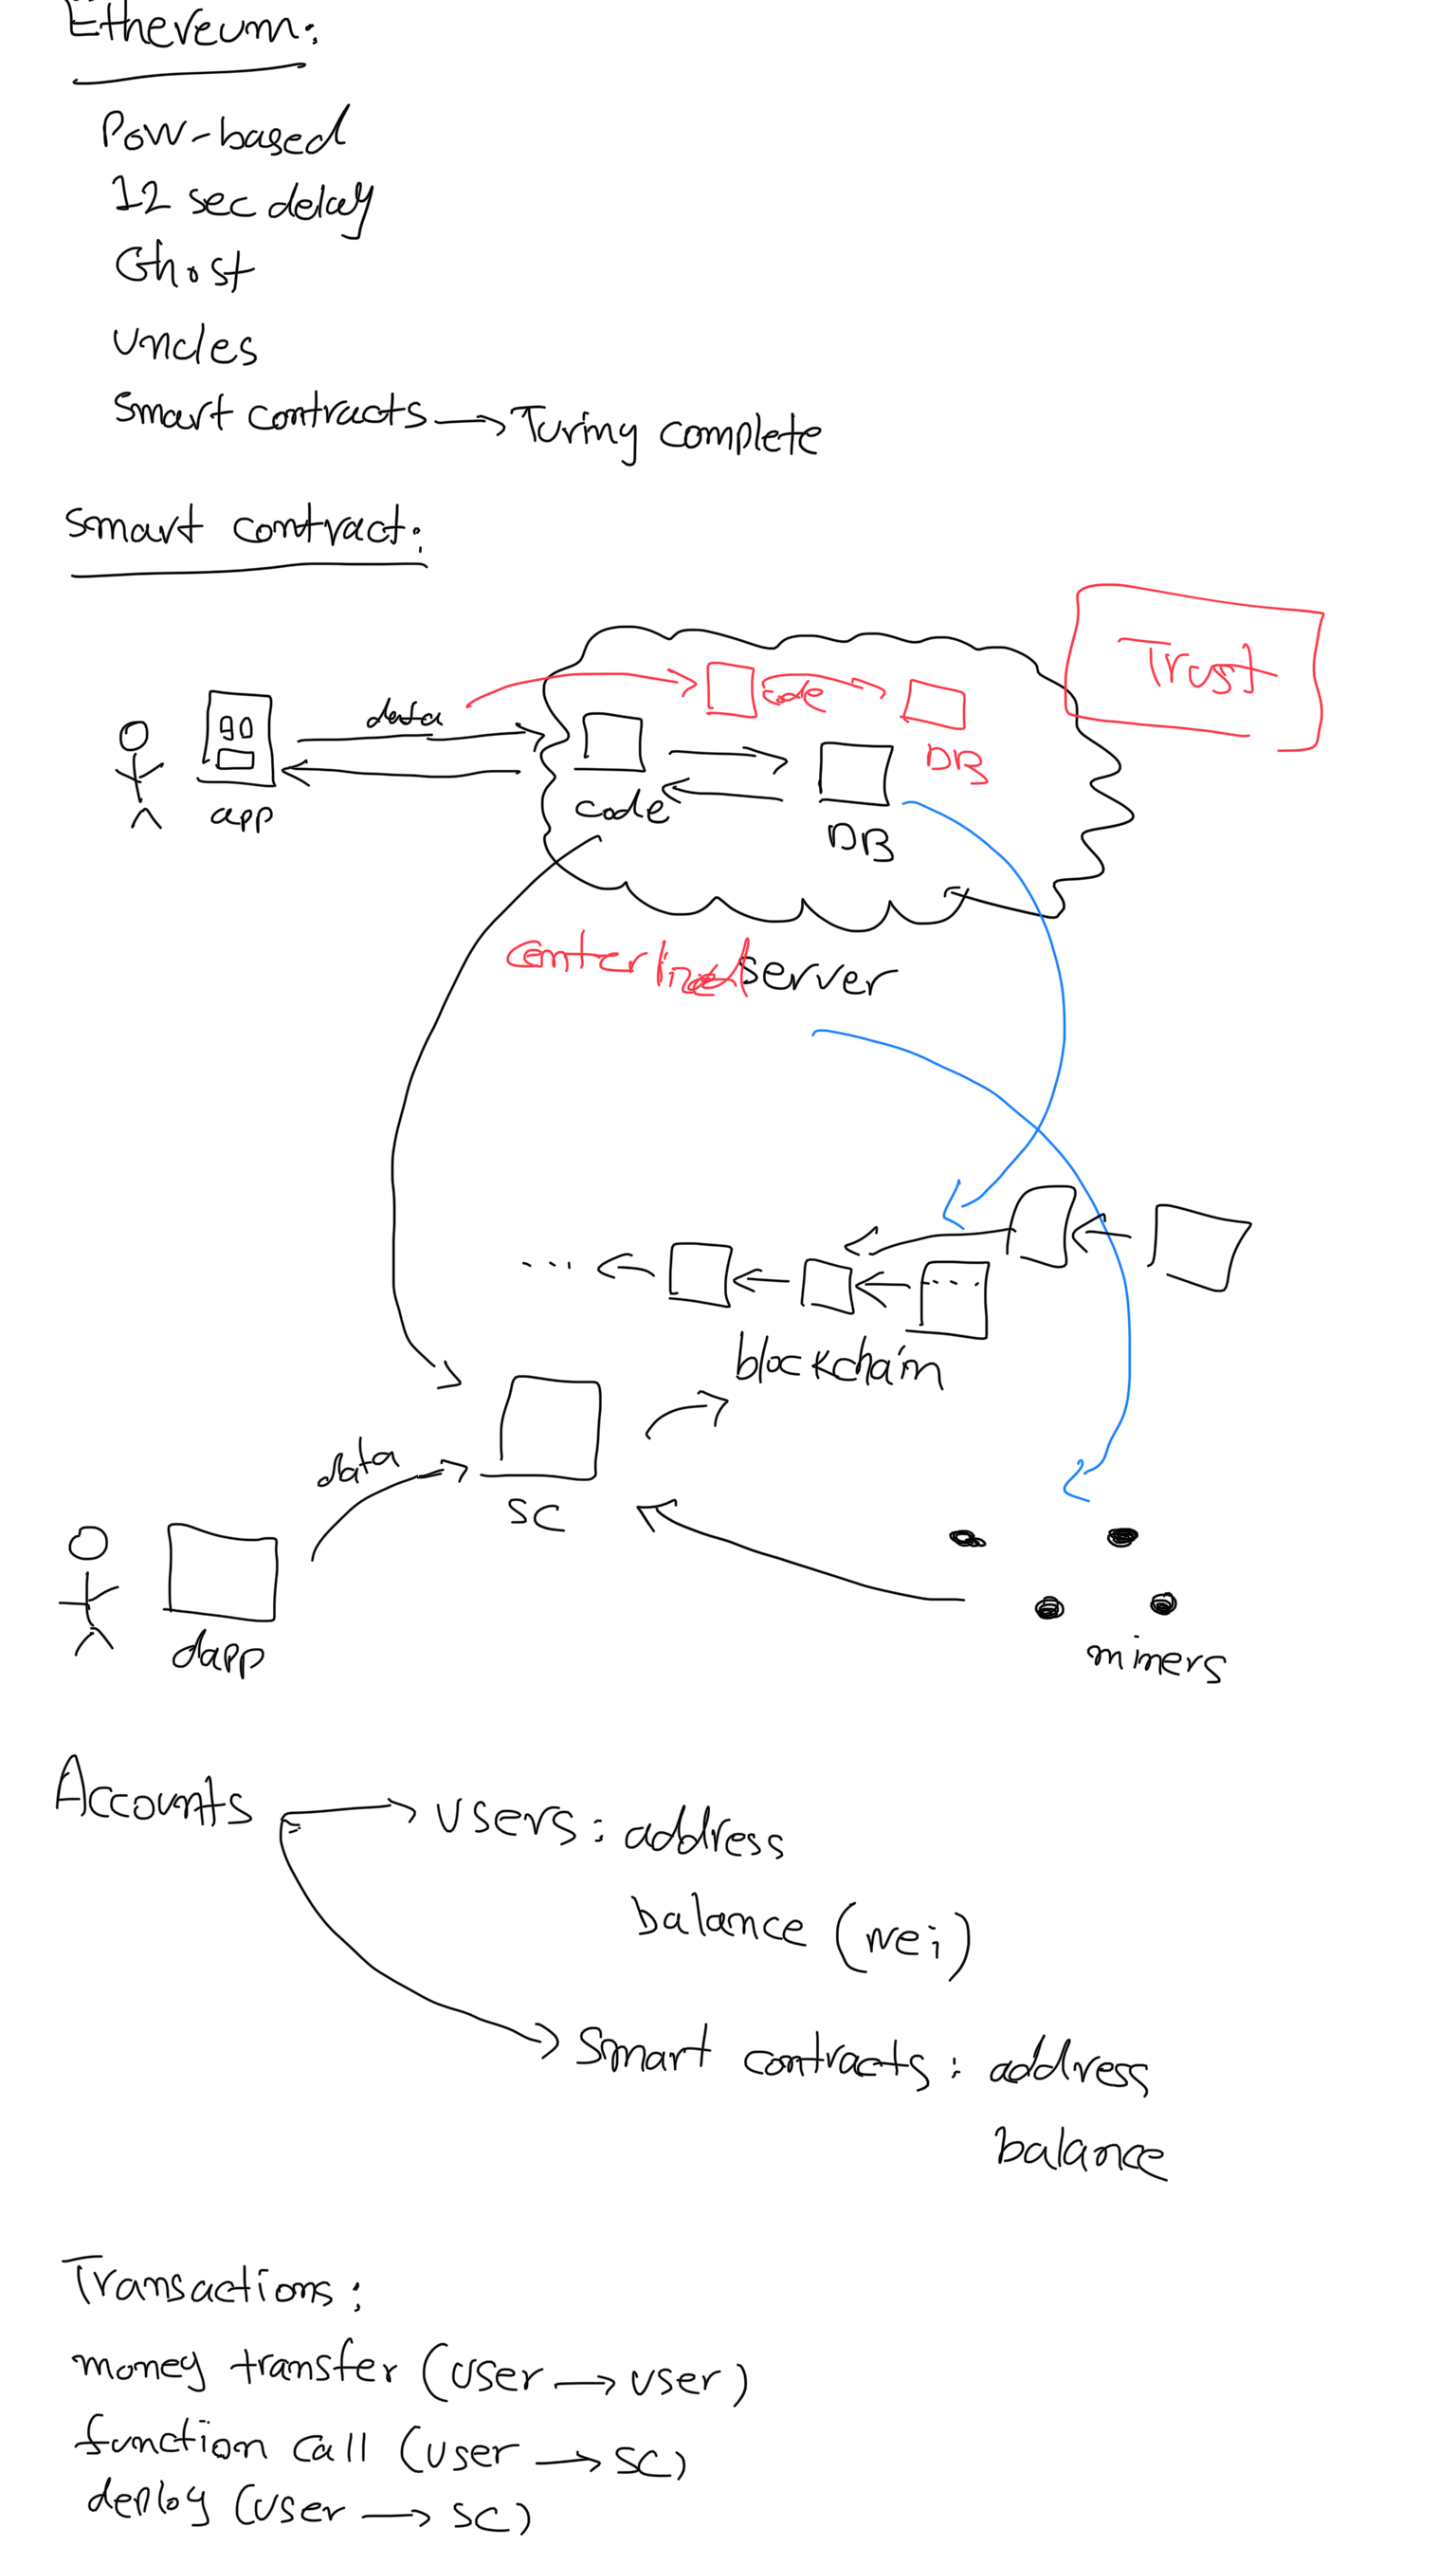 Ethereum:
Pow-based
12 sec delay
Ghost
Uncles
smart contracts → Turing complete
smart contract:
Trust
code
DB
data
90
app
code
DB
centerlized server
...
....
blockchain
data
SC
dapp
miners
Accounts → users: address
balance (wei)
→ Smart contracts: address
balance
Transactions:
money transfer (user → user)
function call (user → SC)
deploy (user → SC)